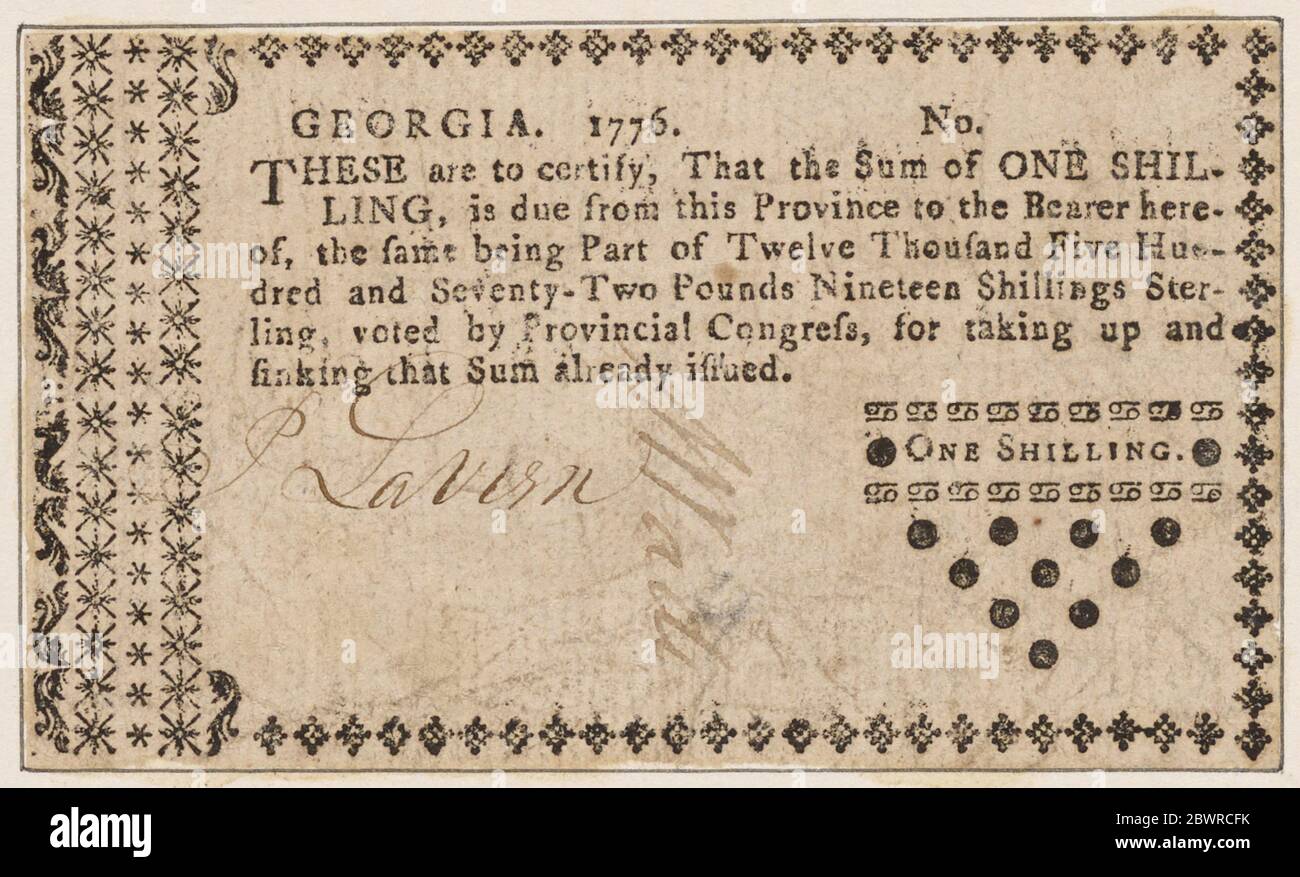 GEORGIA. 1776. No.
THESE are to certify, That the Sum of ONE SHIL-
LING, is due from this Province to the Bearer here-
of, the ſame being Part of Twelve Thouſand Five Hun-
dred and Seventy-Two Pounds Nineteen Shillings Ster-
ling, voted by Provincial Congreſs, for taking up and
ſinking that Sum already iſſued.
ONE SHILLING.
J Lavien
alamy
Image ID: 2BWRCFK
www.alamy.com